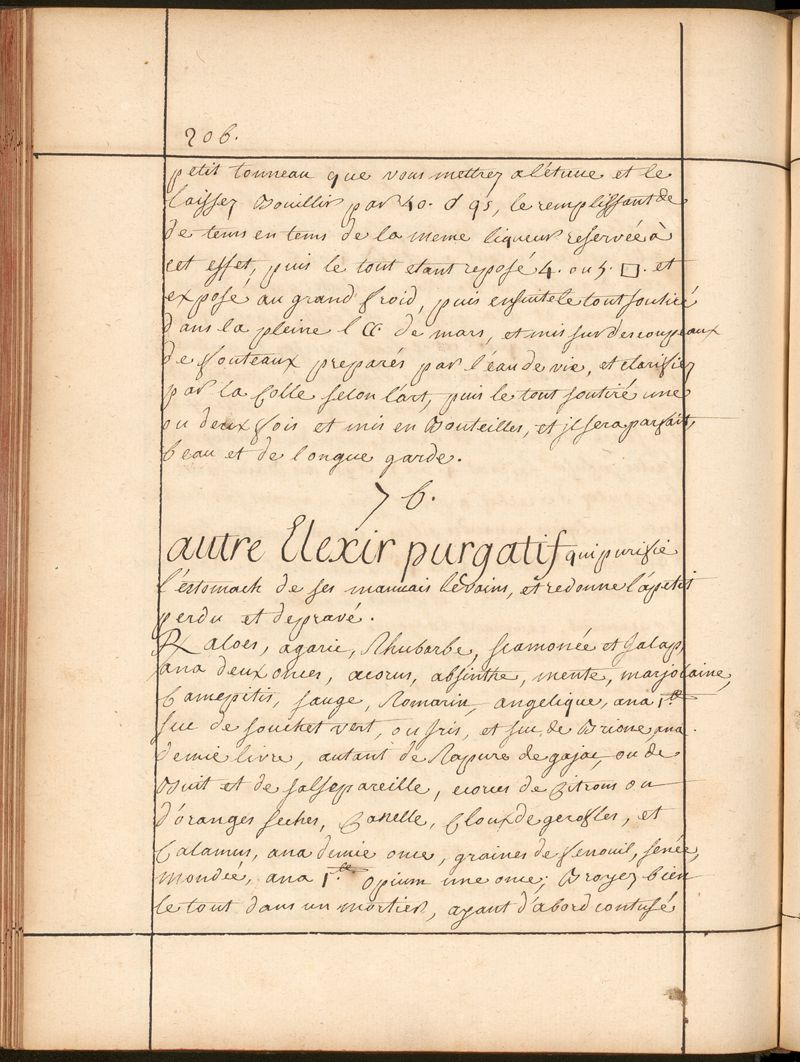 206.
petit tonneau que vous mettrez a létuue et le
laissez Bouillir par 40. d 95, le remplissant de
de tems en tems de la meme liqueur reservée à
cet effet, puis le tout etant reposé 4. ou 5. □. et
exposé au grand froid, puis ensuite le tout soutiré
dans la pleine l CC. de mars, et mis sur des coupeaux
de fouteaux preparés par l'eau de vie, et clarifiez
par la Colle selon l'art, puis le tout soutiré une
ou deux fois et mis en Bouteilles, et jl sera parfait,
beau et de longue garde.
76.
autre Elexir purgatif qui purifie
l'éstomach de ses mauuais levains, et redonne l'apetit
perdu et depravé.
℞ aloes, agaric, Rhubarbe, scamonée et Jalap,
ana deux onces, acorus, absinthe, mente, marjolaine,
Camepitis, sauge, Romarin, angelique, ana 1.
suc de souchet vert, ou Jris, et suc de Brione, ana.
demie livre, autant de Rapure de gajac, ou de
Buit et de salsepareille, ecorces de Citrons ou
d'oranges seches, Canelle, Cloux de gerofles, et
Calamus, ana demie once, graines de fenouil, senée,
mondée, ana 1. opium une once; Broyez bien
le tout dans un mortier, ayant d'abord contusé